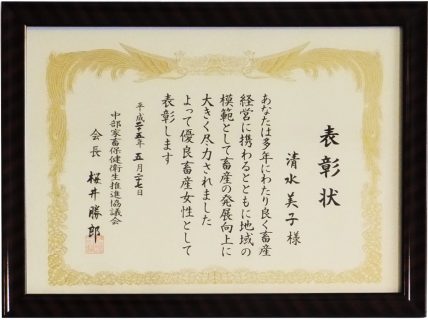 表彰状
清水美子様
あなたは多年にわたり良く畜産
経営に携わるとともに地域の
模範として畜産の発展向上に
大きく尽力されました
よって優良畜産女性として
表彰します
平成二十五年五月二十七日
中部家畜保健衛生推進協議会
会長 桜井勝郎